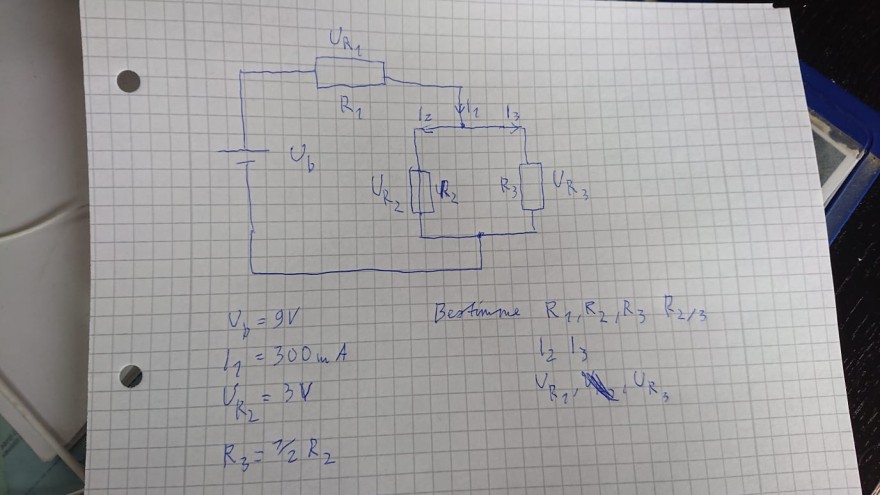 U_R1
R1
I2 I1 I3
U_b
U_R2 R2 R3 U_R3
U_b = 9V
I1 = 300mA
U_R2 = 3V
R3 = 1/2 R2
Bestimme R1, R2, R3 R2/3
I2 I3
U_R1, U_R3